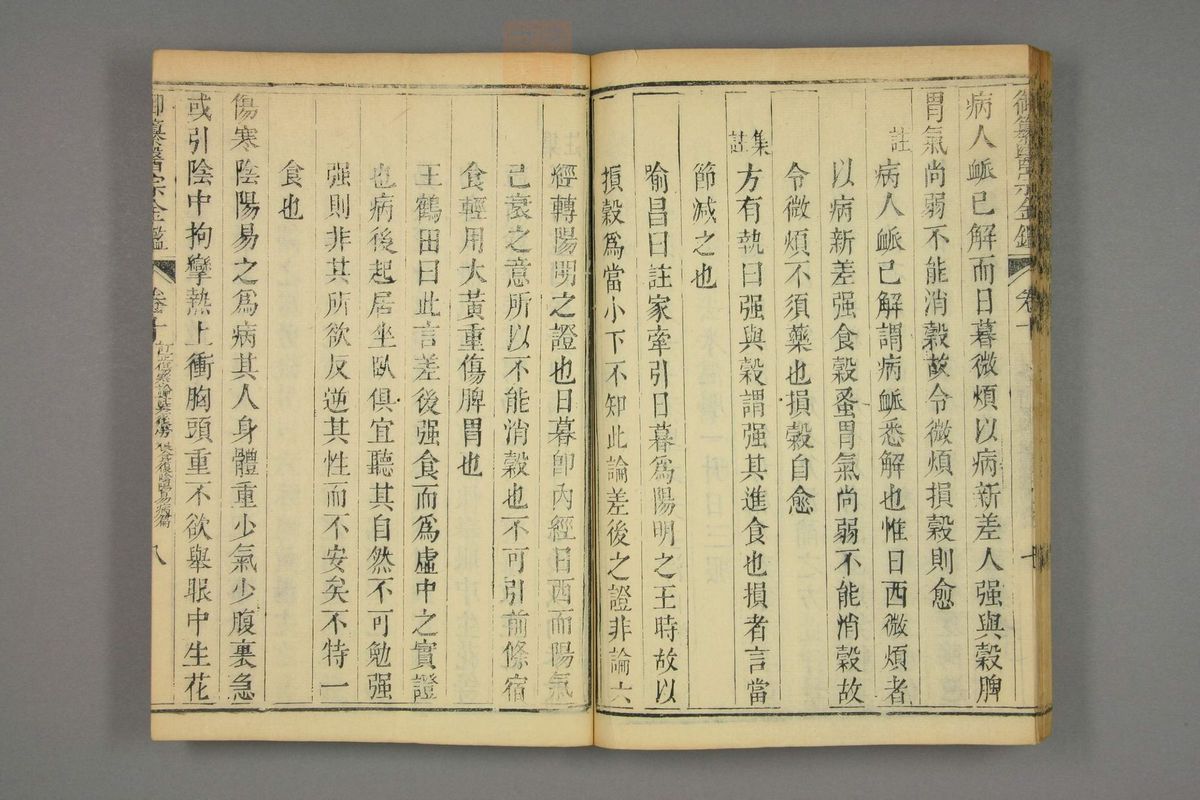 御纂醫宗金鑑 卷十
病人脈已解而日暮微煩以病新差人强與穀脾
胃氣尚弱不能消穀故令微煩損穀則愈
註
病人脈已解謂病脈悉解也惟日西微煩者
以病新差强食穀蚤胃氣尚弱不能消穀故
令微煩不須藥也損穀自愈
集註
方有執曰强與穀謂强其進食也損者言當
節減之也
喻昌曰註家牽引日暮為陽明之王時故以
損穀為當小下不知此論差後之證非論六
經轉陽明之證也日暮卽內經日西而陽氣
已衰之意所以不能消穀也不可引前條宿
食輕用大黃重傷脾胃也
王鶴田曰此言差後强食而為虛中之實證
也病後起居坐臥俱宜聽其自然不可勉强
强則非其所欲反逆其性而不安矣不特一
食也
傷寒陰陽易之為病其人身體重少氣少腹裏急
或引陰中拘攣熱上衝胸頭重不欲舉眼中生花
御纂醫宗金鑑 卷十 八